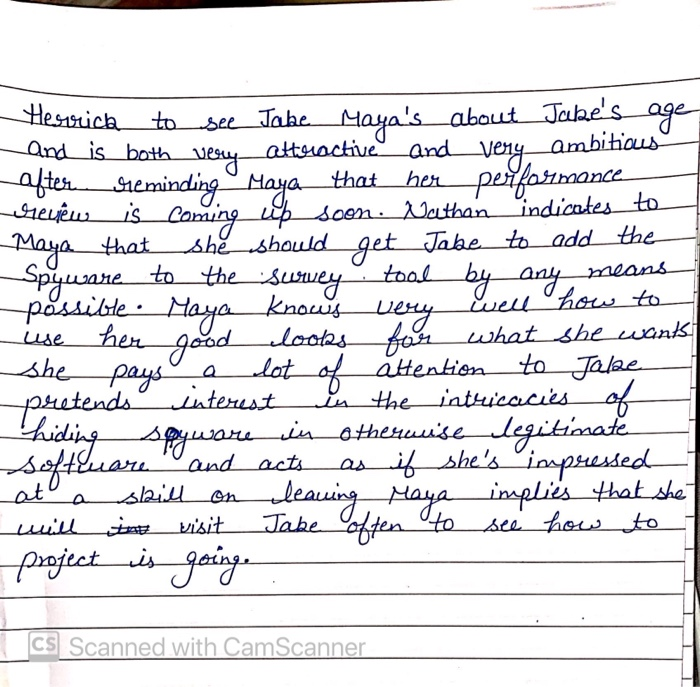 Herrick to see Jake Maya's about Jake's age
and is both very attractive and very ambitious
after reminding Maya that her performance
review is coming up soon. Nathan indicates to
Maya that she should get Jake to add the
Spyware to the survey tool by any means
possible. Maya knows very well how to
use her good looks for what she wants
she pays a lot of attention to Jake
pretends interest in the intricacies of
hiding spyware in otherwise legitimate
software and acts as if she's impressed
at a skill on leaving Maya implies that she
will visit Jake often to see how to
project is going.
CS Scanned with CamScanner